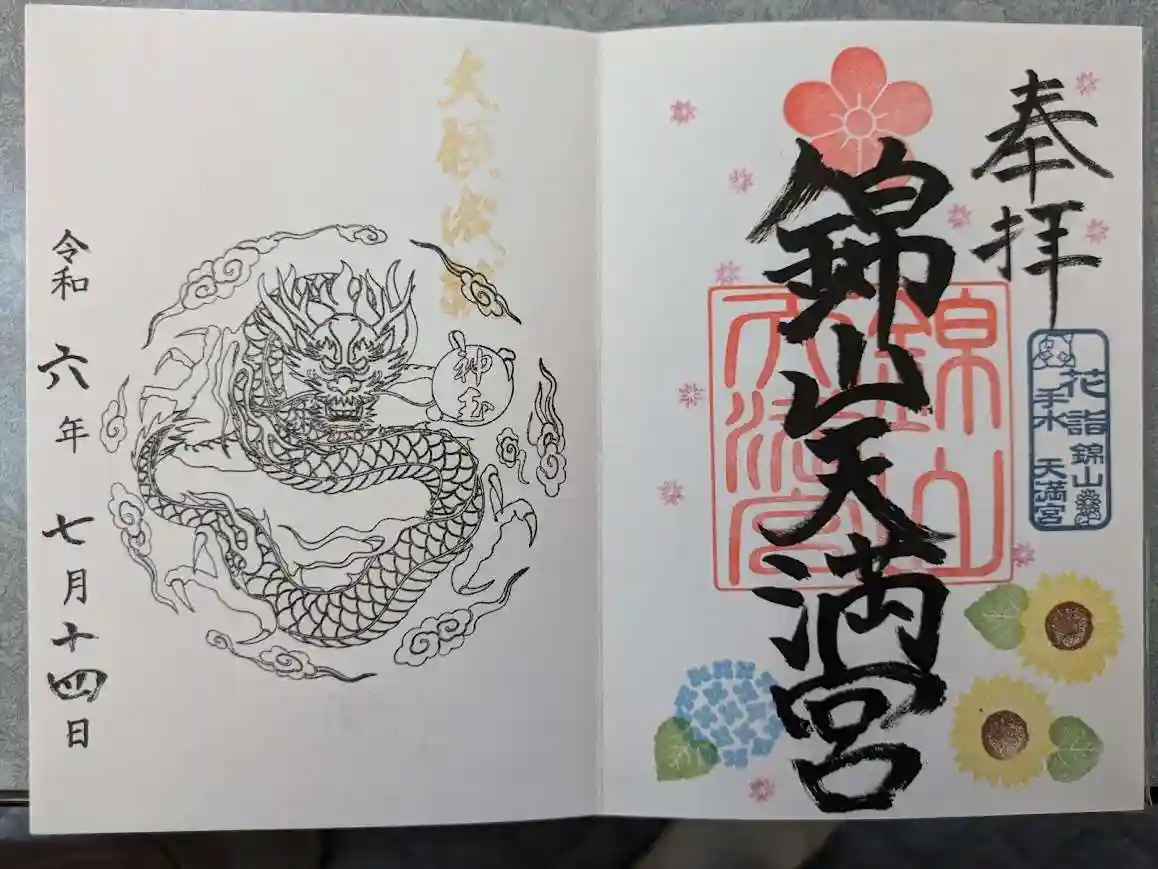 奉拝
錦山天満宮
錦山
天満宮
花手水
詣
錦山
天満宮
大願成就
神恩
令和六年七月十四日